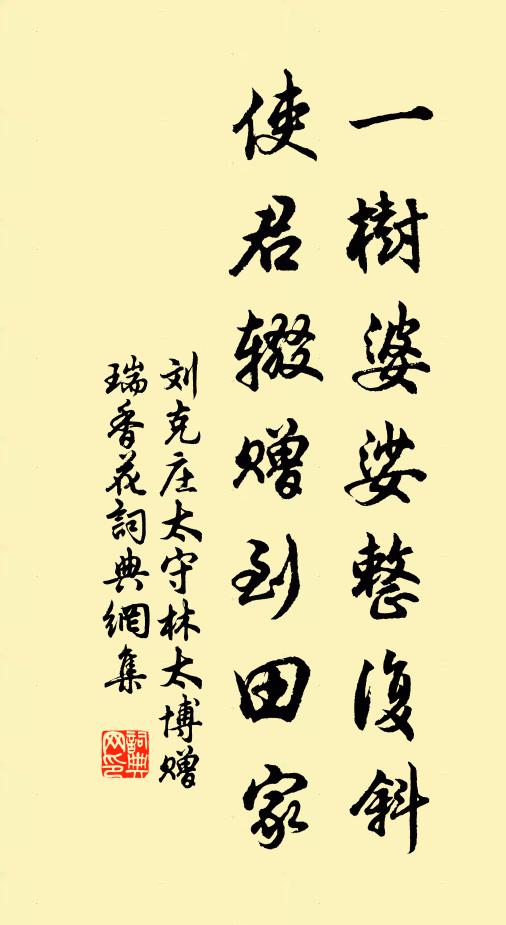 一樹婆娑整復斜
使君辍赠到田家
刘克庄太守林太博赠
瑞香花詞典網集
詞典网印